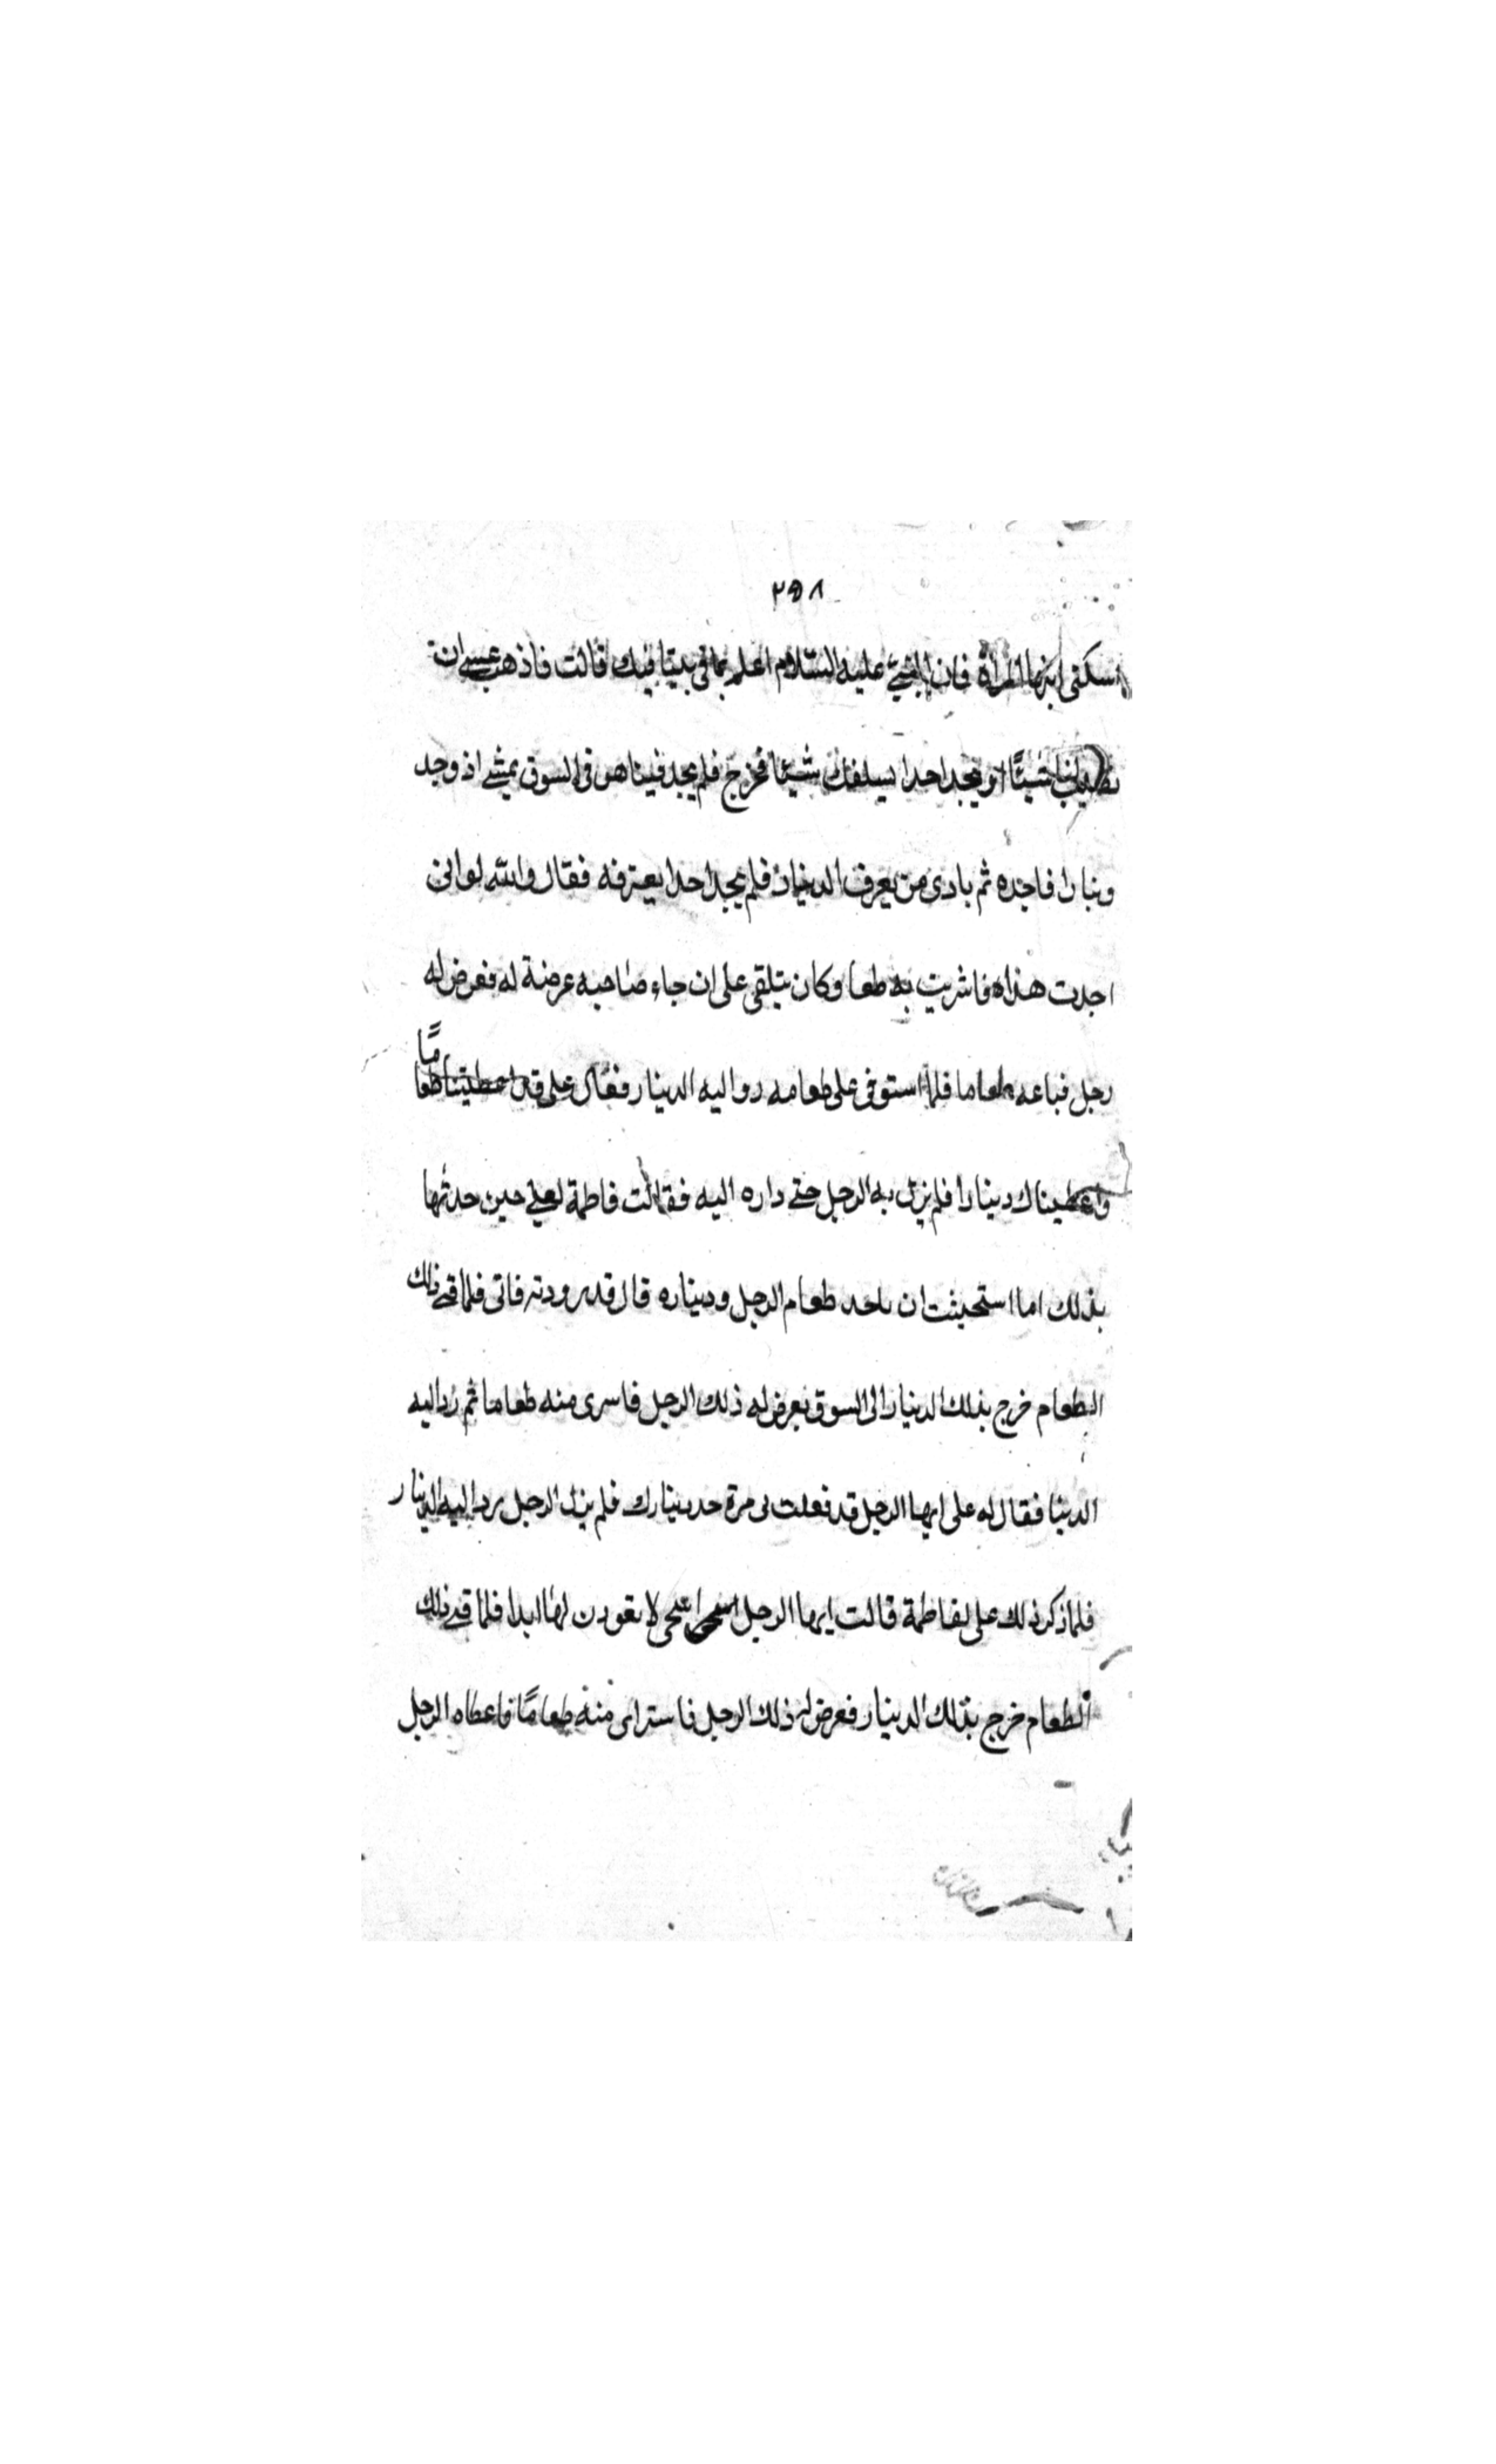 ٢٥٨
اسكتى ايتها المراة فان النبى عليه السّلام اعلم بما فى بيتا بيك قالت فاذهب عسى ان
تطيب لنا شيئًا او يجد احدا يسلفك شيئا فخرج فلم يجد فبينا هو فى السوق يمشى اذ وجد
دينارا فاخذه ثم نادى من يعرف الدينار فلم يجد احدا يعترفه فقال والله لو انى
اخذت هذا فاشريت به طعا وكان يتلقى على ان جاء صاحبه عرضة له فعرض له
رجل فباعه طعاما فلما استوفى على طعامه رد اليه الدينار فقال على قد اعطيتنا طعامًا
واعطيناك دينارا فلم يزل به الرجل حتى داره اليه فقالت فاطمة لعلى حين حدثها
بذلك اما استحيت ان باخد طعام الرجل وديناره قال قد رددته فاتى فلما فنى ذلك
الطعام خرج بذلك الدينار الى السوق بعرض له ذلك الرجل فاسرى منه طعاما ثم رد اليه
الدينا فقال له على ايها الرجل قد فعلت بى مرة خد دينارك فلم يزل الرجل يرد اليه الدينار
فلما ذكر ذلك على لفاطمة قالت ايها الرجل استحى لا تعودن لهٰا ابدا فلما فنى ذلك
الطعام خرج بذلك الدينار فعرض له ذلك الرجل فاسترى منه طعامًا فاعطاه الرجل